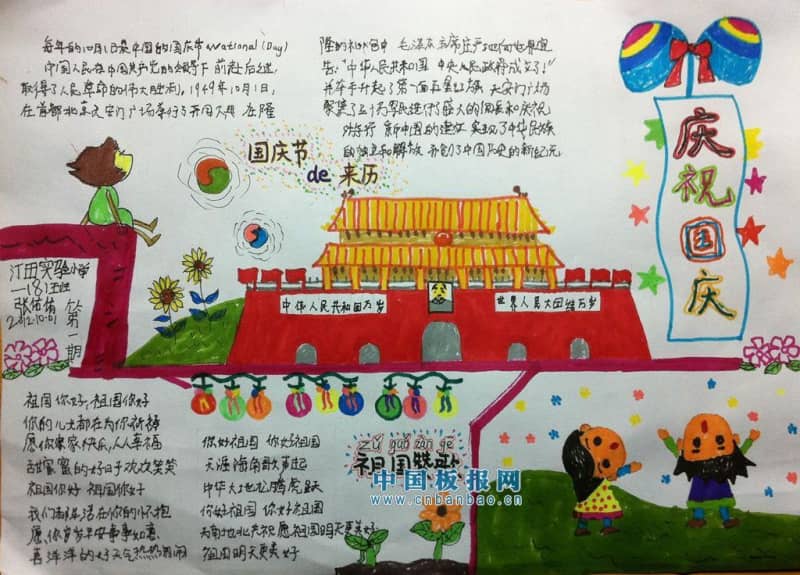 每年的10月1日是中国的国庆节National(Day)
中国人民在中国共产党的领导下前赴后继,
取得了人民革命的伟大胜利,1949年10月1日,
在首都北京天安门广场举行了开国大典 在隆
隆的礼炮声中 毛泽东主席庄严地向世界宣
告:"中华人民共和国 中央人民政府成立了!"
并亲手升起了第一面五星红旗 天安门广场
聚集了三十万军民进行了盛大的阅兵和庆祝
游行 新中国的建立 实现了中华民族
的独立和解放 开创了中国历史的新纪元
国庆节
de 来历
庆祝国庆
江田实验小学
一(8)班
2012.10.01
第一期
中华人民共和国万岁
世界人民大团结万岁
祖国你好,祖国你好
你的儿女都在为你祈祷
愿你家家快乐,人人幸福
甜蜜蜜的好日子欢欢笑笑
祖国你好 祖国你好
我们都生活在你的怀抱
愿你岁岁平安事事如意
喜洋洋的好天气热热闹闹
你好祖国 你好祖国
天涯海角歌声起
中华大地龙腾虎跃
你好祖国 你好祖国
大南北庆祝愿祖国明天更美好
祖国明天更美好
zǔ guó zàn gē
祖国赞歌
中国板报网
www.cnbanbao.cn